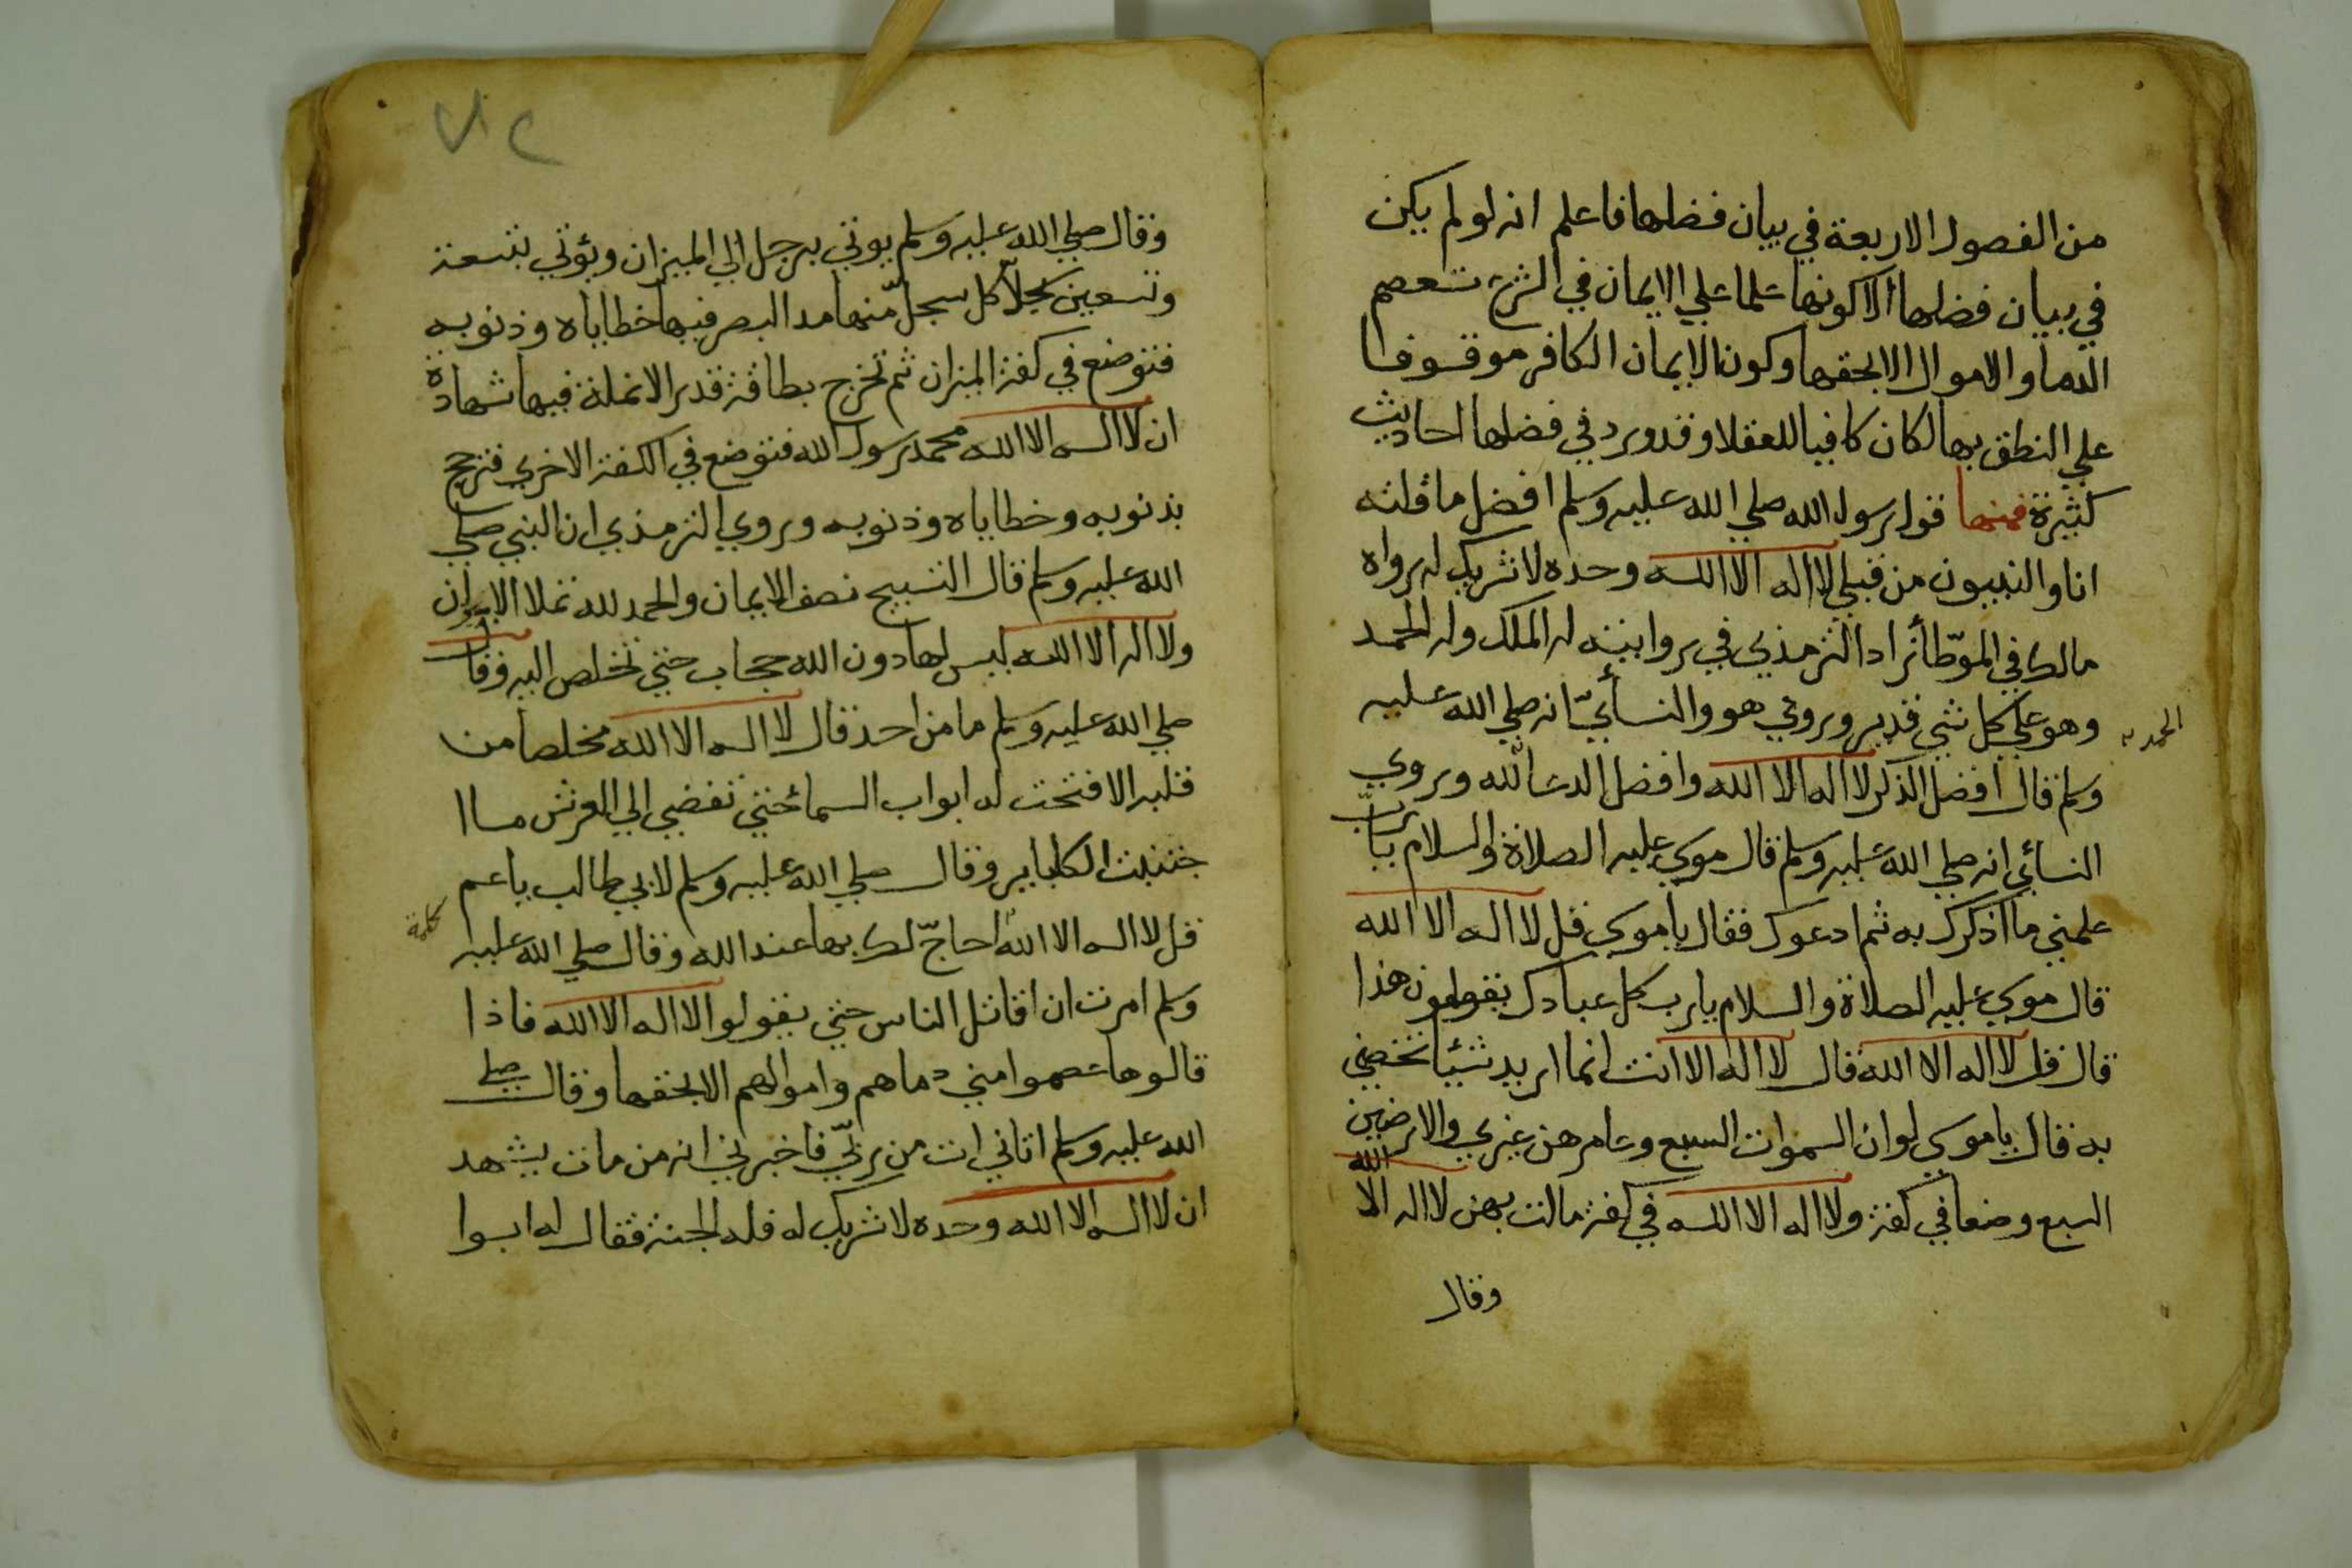 من الفصول الاربعة في بيان فضلها فاعلم انه لو لم يكن
في بيان فضلها الا كونها علما علي الايمان في الشرع تعصم
الدما والاموال الا بحقها وكون الايمان الكافر موقوفا
علي النطق بها لكان كافيا للعقلا وقد ورد في فضلها احاديث
كثيرة فمنها قول رسول الله صلي الله عليه وسلم افضل ما قلته
انا والنبيون من قبلي لا اله الا الله وحده لا شريك له رواه
مالك في الموّطأ زاد الترمذي في روايته له الملك وله الحمد
وهو علي كل شي قدير وروي هو والنسأيّ انه صلي الله عليه
وسلم قال افضل الذكر لا اله الا الله وافضل الدعا لله وروي
الحمد
النسأي انه صلي الله عليه وسلم قال موسي عليه الصلاة والسلام يا ربّ
علمني ما اذكرك به ثم ادعوك فقال يا موسي قل لا اله الا الله
قال موسي عليه الصلاة والسلام يا رب كل عبادك يقولون هذا
قال قل لا اله الا الله قال لا اله الا انت انما اريد شيئا تخصني
به قال يا موسي لو ان السموات السبع وعامرهن غيري والارضين
السبع وضعا في كفة ولا اله الا الله في كفة مالت بهن لا اله الا الله
وقال
٧٢
وقال صلي الله عليه وسلم يوتي برجل الي الميزان ويؤتي بتسعة
وتسعين سجلاّ كل سجلّ منها مد البصر فيها خطاياه وذنوبه
فتوضع في كفة الميزان ثم تخرج بطاقة قدر الانملة فيها شهادة
ان لا اله الا الله محمد رسول الله فتوضع في الكفة الاخري فترجح
بذنوبه وخطاياه وذنوبه وروي الترمذي ان النبي صلي
الله عليه وسلم قال التسبيح نصف الايمان والحمد لله تملا الميزان
ولا اله الا الله ليس لها دون الله حجاب حتي تخلص اليه وقال
صلي الله عليه وسلم ما من احد قال لا اله الا الله مخلصا من
قلبه الا فتحت له ابواب السما حتي تفضي الي العرش ما ا
جتنبت الكبايير وقال صلي الله عليه وسلم لابي طالب يا عم
قل لا اله الا الله احاجّ لك بها عند الله وقال صلي الله عليه
كلمة
وسلم امرت ان اقاتل الناس حتي يقولوا لا اله الا الله فاذا
قالوها عصموا مني دماهم واموالهم الا بحقها وقال صلي
الله عليه وسلم اتاني ات من ربّي فاخبرني انه من مات يشهد
ان لا اله الا الله وحده لا شريك له فله الجنة فقال له ابوا